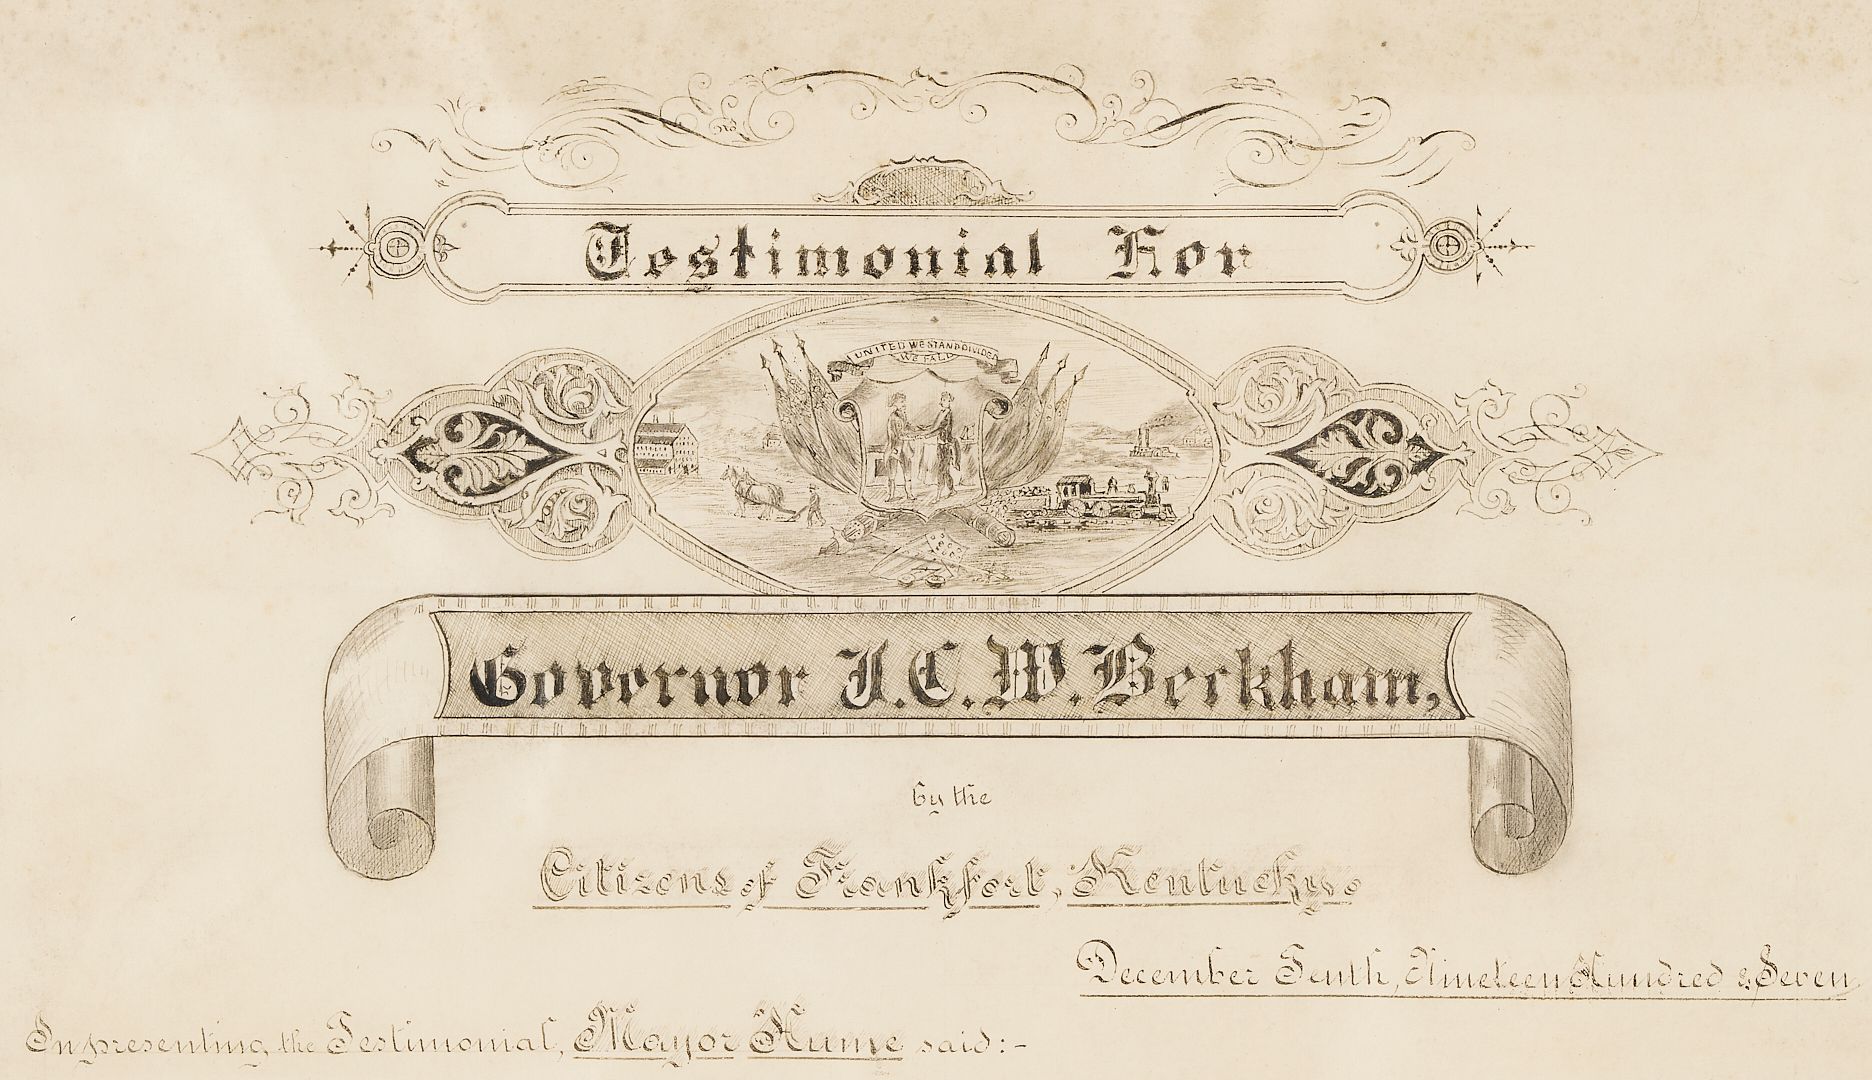 Testimonial For
UNITED WE STAND DIVIDED
WE FALL
Governor J.C.W. Beckham,
by the
Citizens of Frankfort, Kentucky.
December Tenth, Nineteen Hundred & Seven
In presenting the Testimonial, Mayor Hume said:-